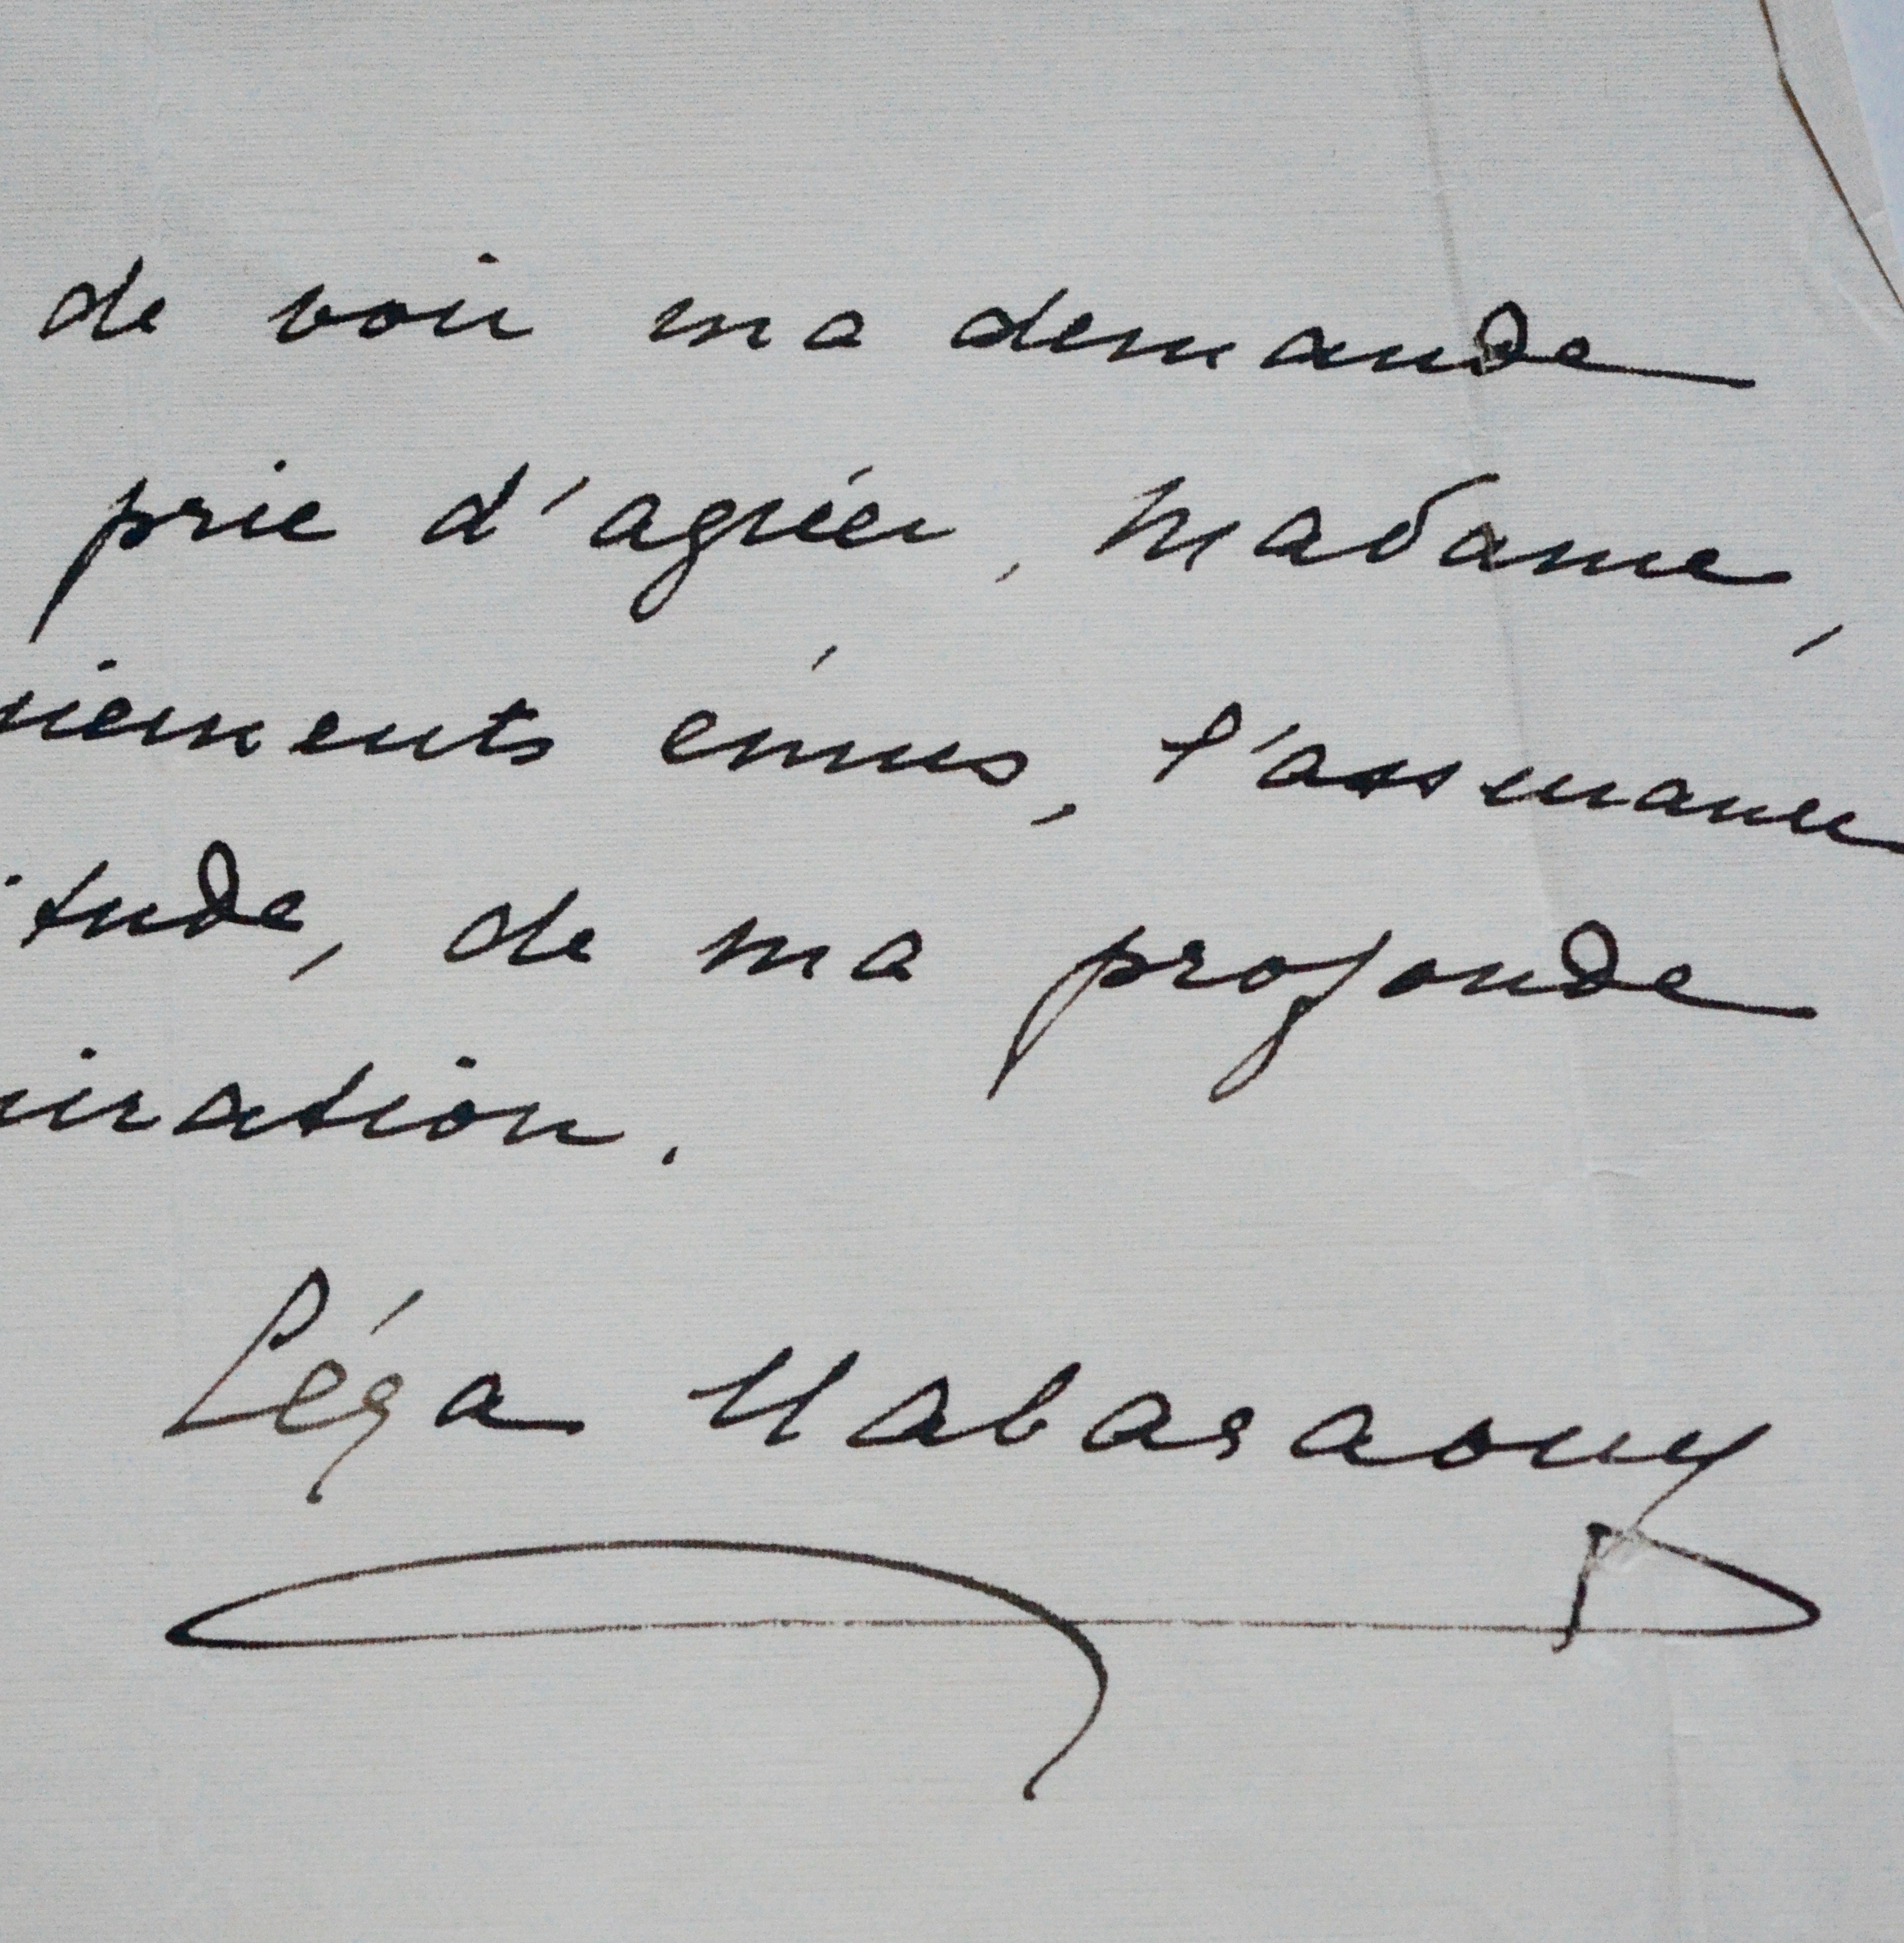 de voir ma demande
prie d'agréer, Madame,
ciements émus, l'assurance
itude, de ma profonde
iration.
Léga